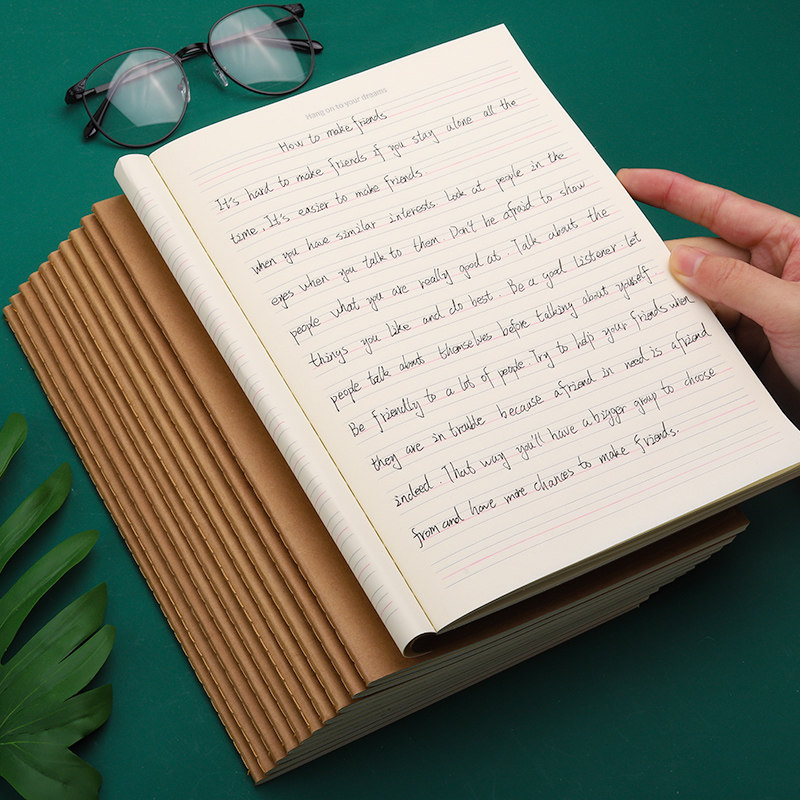 Hang on to your dreams
How to make friends
It's hard to make friends if you stay alone all the
time. It's easier to make friends
when you have similar interests Look at people in the
eyes when you talk to them. Don't be afraid to show
people what you are really good at. Talk about the
things you like and do best. Be a good listener let
people talk about themselves before talking about yourself
Be friendly to a lot of people Try to help your friends when
they are in trouble because a friend in need is a friend
indeed. That way you'll have a bigger group to choose
from and have more chances to make friends.